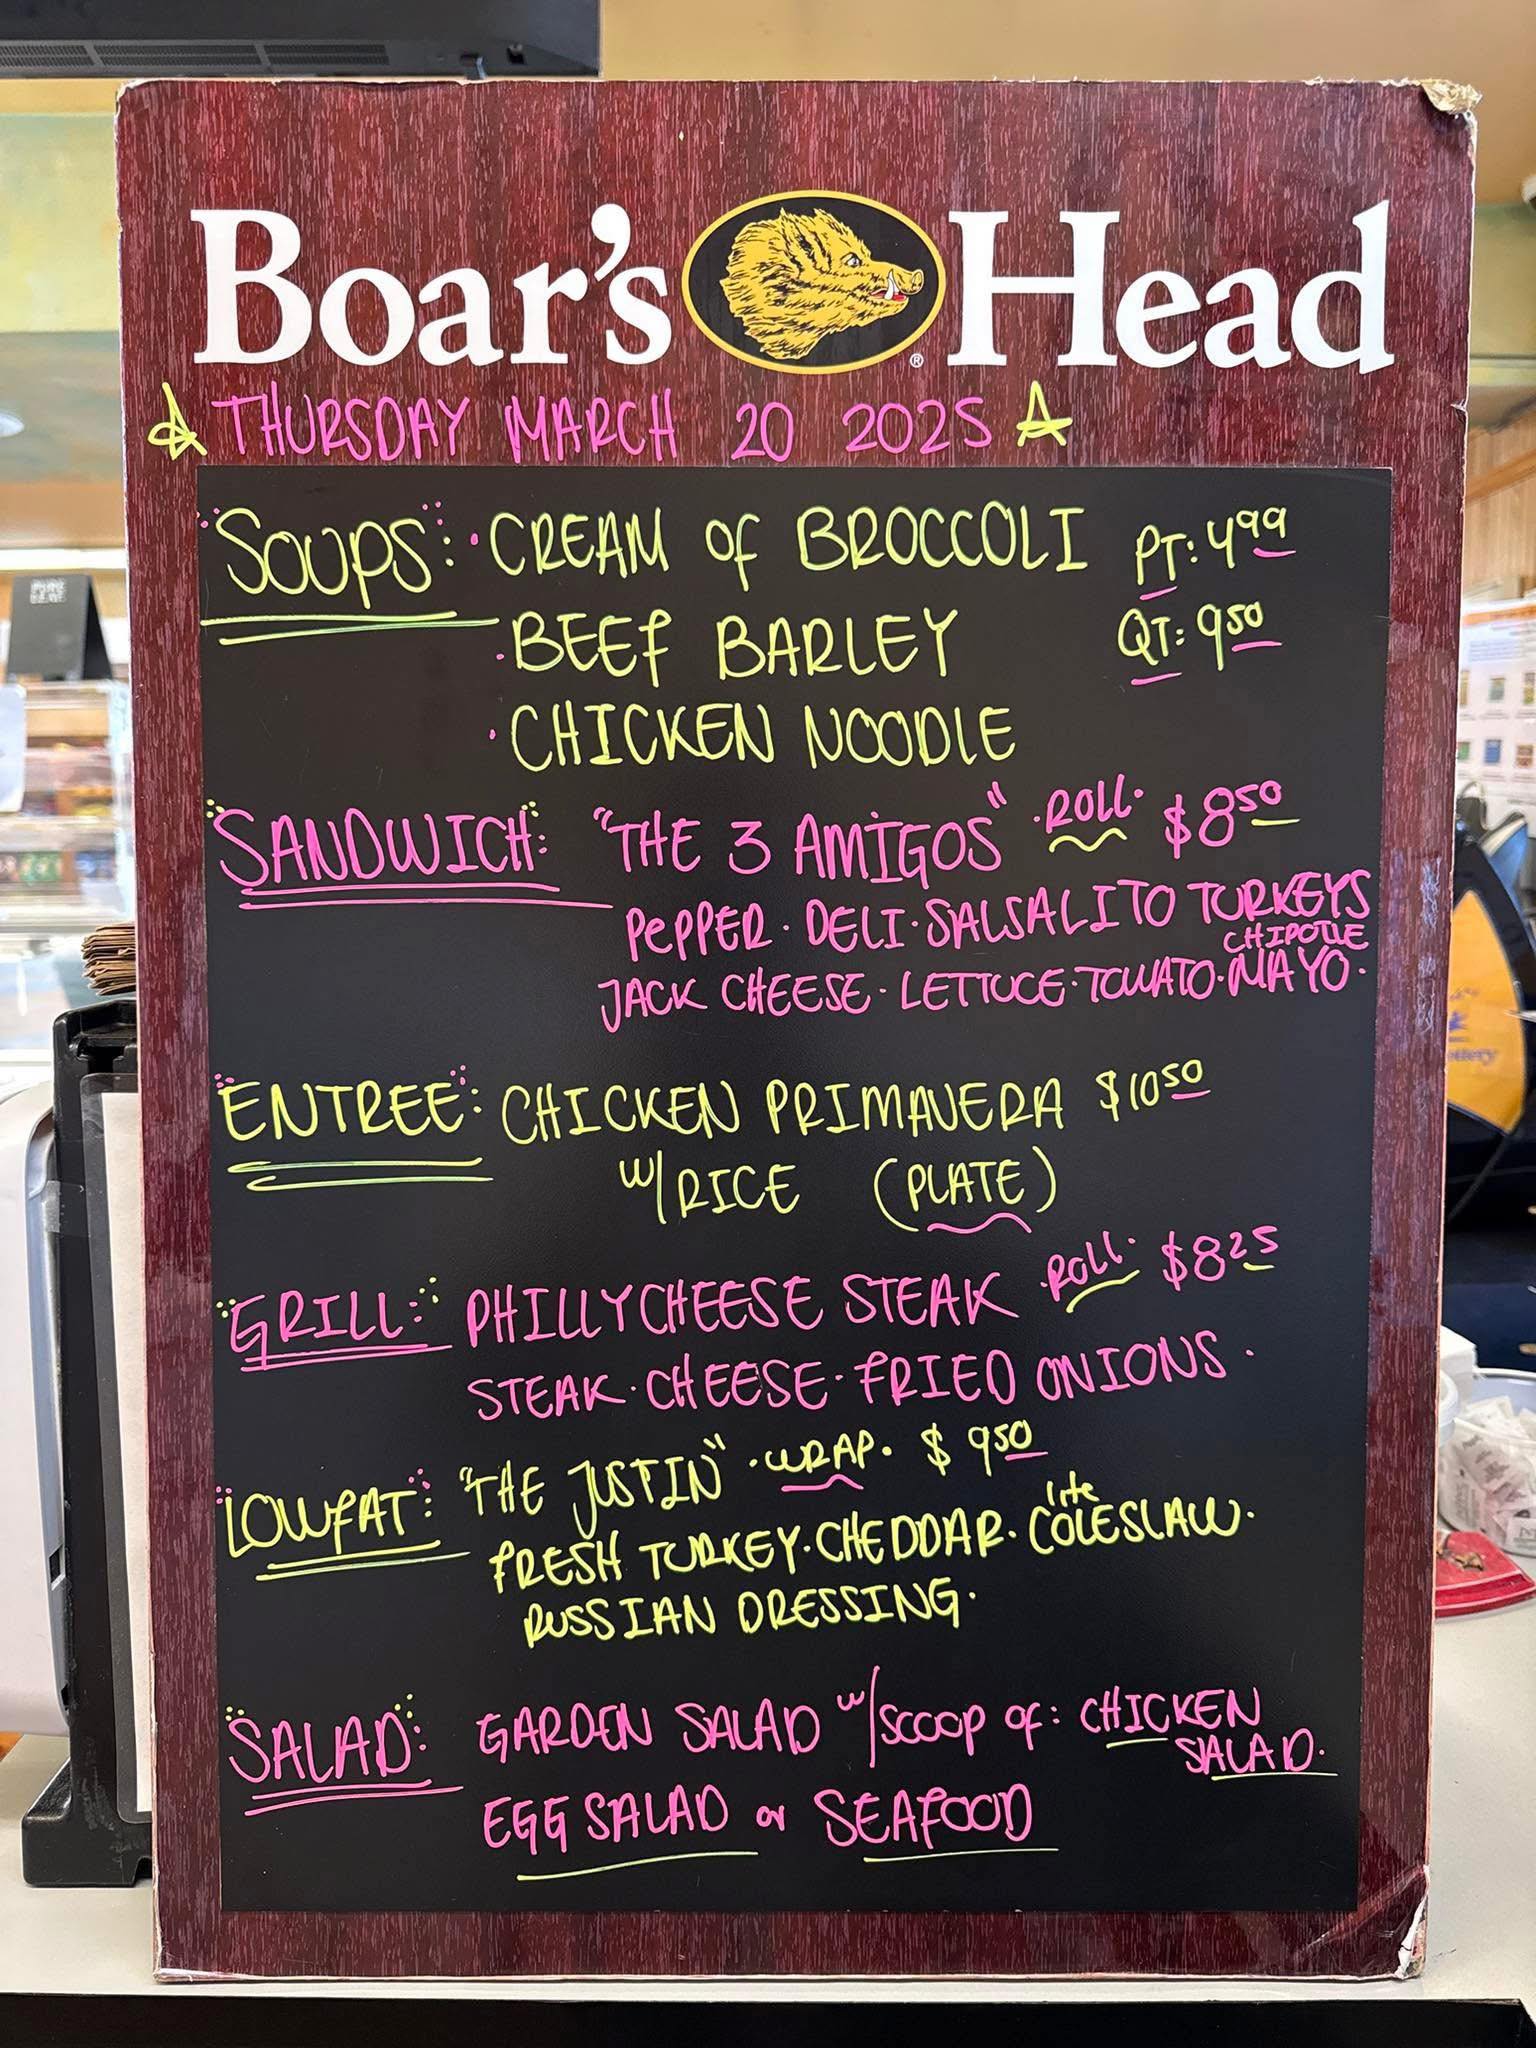 Boar's Head ®
THURSDAY MARCH 20 2025
SOUPS: · CREAM of BROCCOLI PT: 4.99
· BEEF BARLEY QT: 9.50
· CHICKEN NOODLE
SANDWICH: "THE 3 AMIGOS" · ROLL · $8.50
PEPPER · DELI · SALSALITO TURKEYS
JACK CHEESE · LETTUCE · TOMATO · CHIPOTLE MAYO ·
ENTREE: CHICKEN PRIMAVERA $10.50
w/RICE (PLATE)
GRILL: PHILLYCHEESE STEAK · ROLL · $8.25
STEAK · CHEESE · FRIED ONIONS ·
LOWFAT: "THE JUSTIN" · WRAP · $9.50
FRESH TURKEY · CHEDDAR · lite COLESLAW ·
RUSSIAN DRESSING ·
SALAD: GARDEN SALAD w/SCOOP of: CHICKEN
SALAD.
EGG SALAD or SEAFOOD